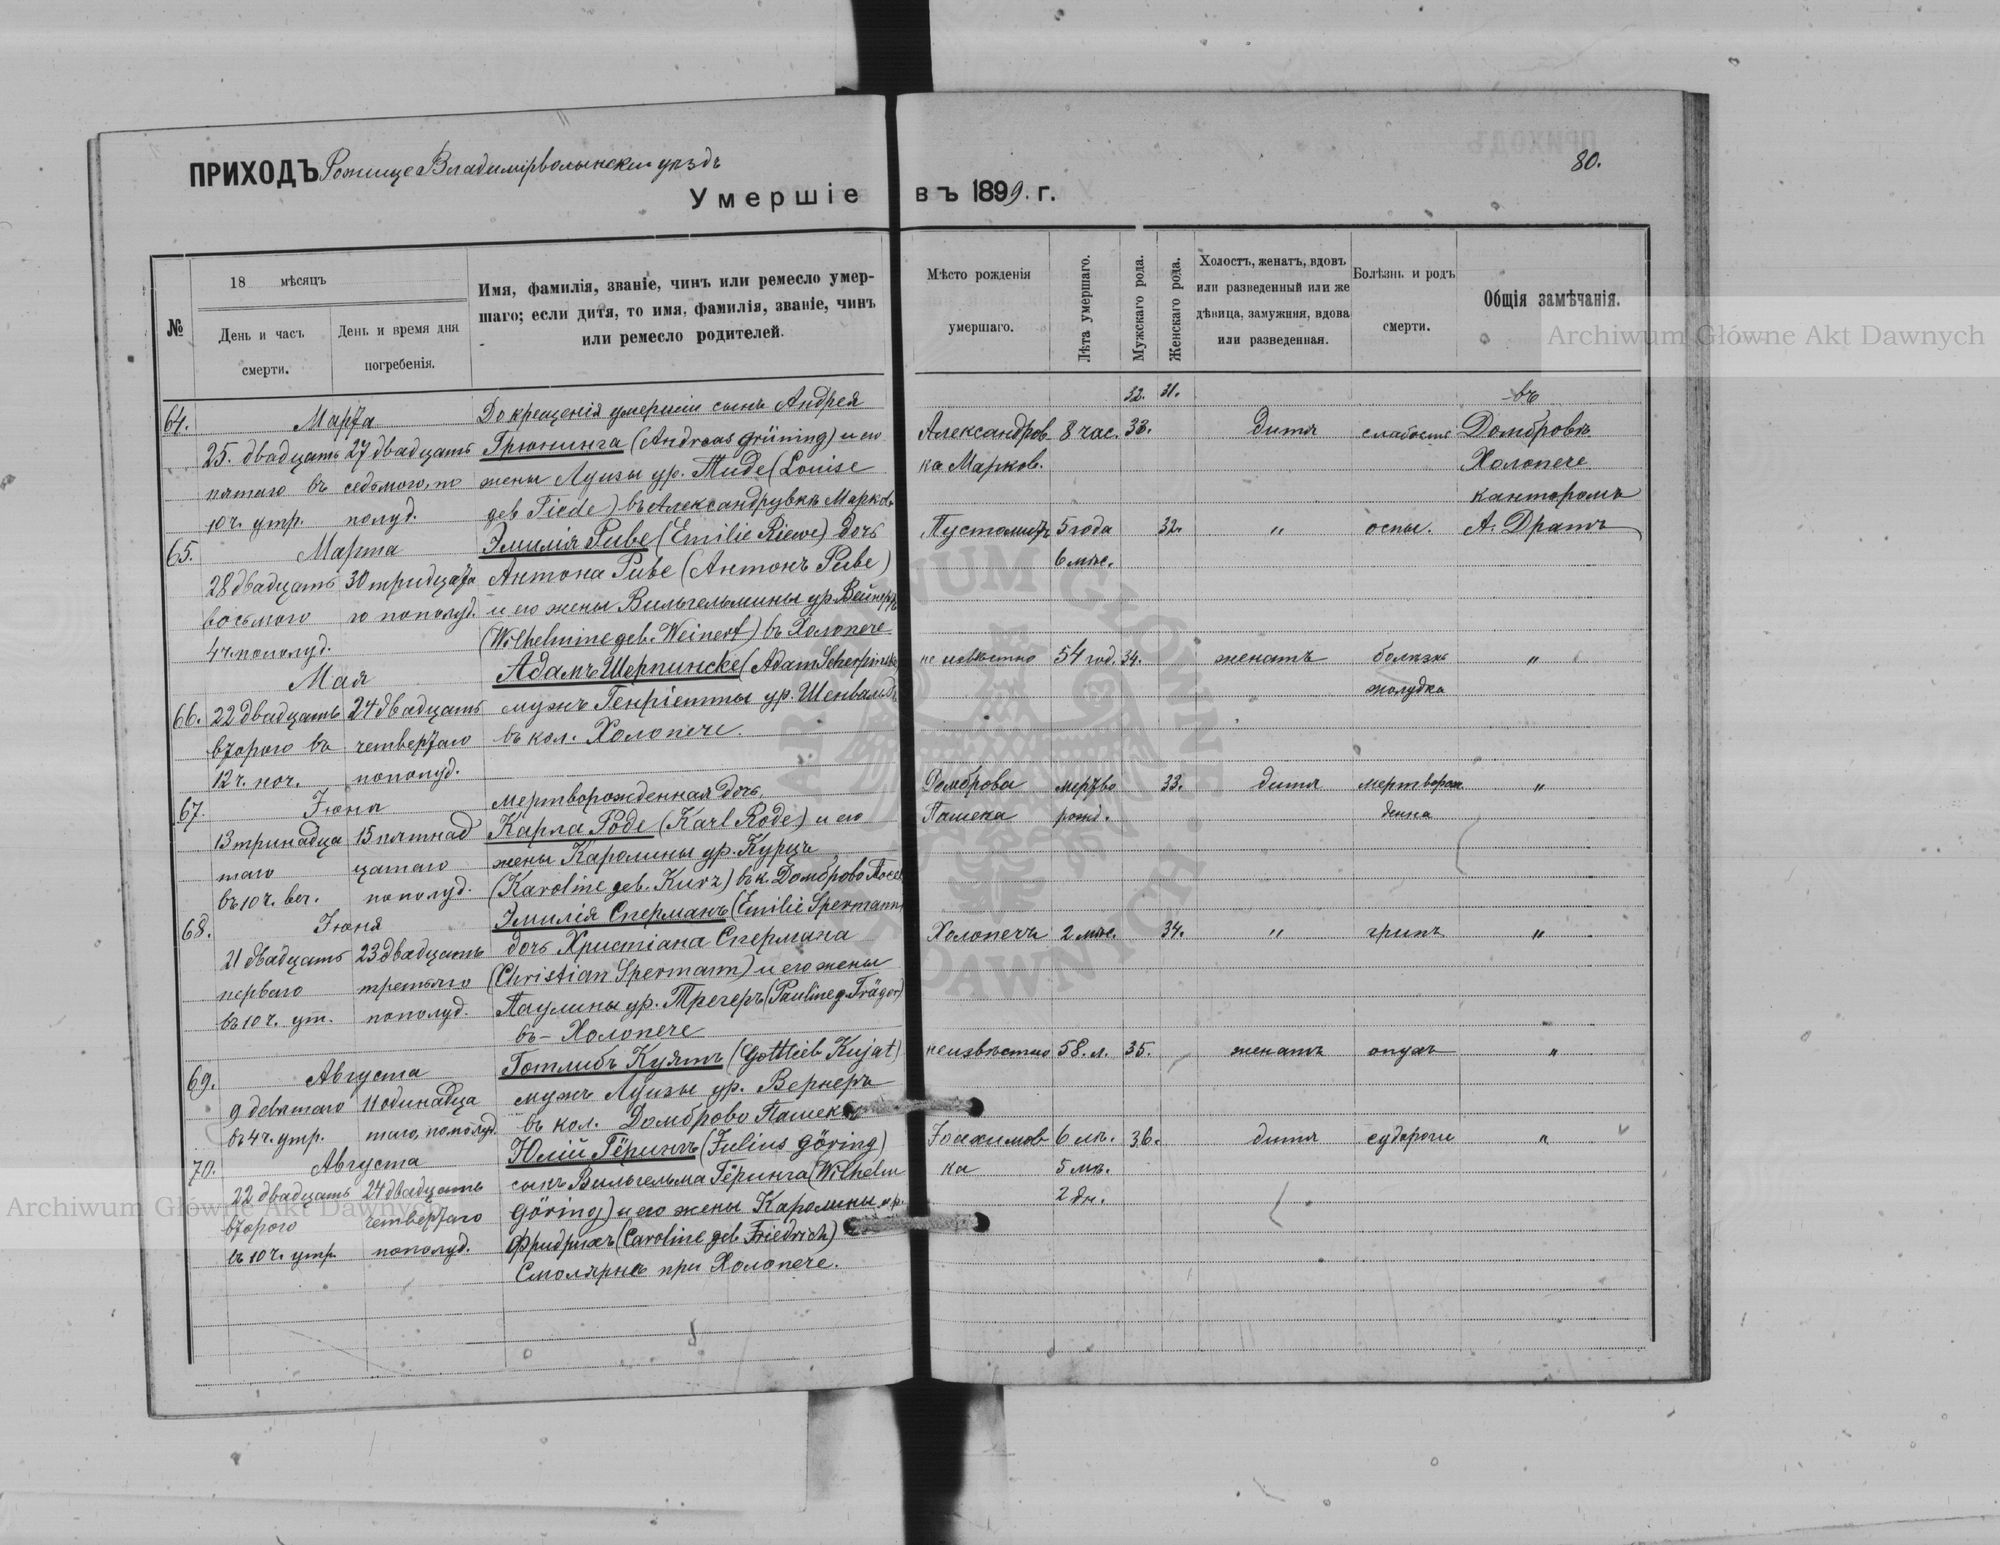 ПРИХОДЪ Рожище Владимірволынскій уѣздъ
80.
Умершіе въ 1899. г.
№
18 мѣсяцъ
День и часъ смерти.
День и время дня погребенія.
Имя, фамилія, званіе, чинъ или ремесло умер-
шаго; если дитя, то имя, фамилія, званіе, чинъ
или ремесло родителей.
Мѣсто рожденія
умершаго.
Лѣта умершаго.
Мужскаго рода.
Женскаго рода.
Холостъ, женатъ, вдовъ
или разведенный или же
дѣвица, замужняя, вдова
или разведенная.
Болѣзнь и родъ
смерти.
Общія замѣчанія.
Archiwum Główne Akt Dawnych
32. 31.
64. Марта До крещенія умершій сынъ Андрея въ
25. двадцать 27 двадцать Грюнинга (Andreas Grüning) и его Александров 8 час. 33. дитя слабость Домбровкѣ
пятаго въ седьмого, по жены Луизы ур. Тиде (Louise ка Марков. Холопече
10 ч. утр. полуд. geb Tiede) въ Александрувкѣ Марков канторомъ
65. Марта Эмилія Риве (Emilie Riewe) дочь Пустомытъ 5 года 32. " оспы. А. Дратъ
28 двадцать 30 тридцата Антона Риве (Антонъ Риве) 6 мѣс.
восьмого го пополуд. и его жены Вильгельмины ур. Вейнертъ
4 ч. пополуд. (Wilhelmine geb. Weinert) въ Холопече
Мая Адамъ Шерпинске (Adam Scherpinske) не извѣстно 54 год. 34. женатъ болѣзнь "
желудка
66. 22 двадцать 24 двадцать мужъ Генріетты ур. Шенвальдъ
второго въ четвертаго въ кол. Холопече.
12 ч. ноч. пополуд.
67. Іюня мертворожденная дочь Домброва мертво 33. дитя мертворож "
13 тринадца 15 пятнад Карла Роде (Karl Rode) и его Пашека рожд. денна
таго цатаго жены Каролины ур. Курцъ
въ 10 ч. веч. пополуд. (Karoline geb. Kurz) въ к. Домброво
68. Іюня Эмилія Сперманъ (Emilie Spermann)
21 двадцать 23 двадцать дочь Христіана Спермана Холопечъ 2 мѣс. 34. " грипъ "
перваго третьяго (Christian Spermann) и его жены
въ 10 ч. ут. пополуд. Паулины ур. Трегеръ (Pauline g. Träger)
въ - Холопече "
69. Августа Готлибъ Куятъ (Gottlieb Kujat) неизвѣстно 58. л. 35. женатъ опухъ "
9 девятаго 11 одинадца мужъ Луизы ур. Вернеръ
въ 4 ч. утр. таго, пополуд. въ кол. Домброво Пашека
70. Августа Юлій Гёрингъ (Julius Göring) Іоахимов 6 лѣ. 36. дитя судороги "
22 двадцать 24 двадцать сынъ Вильгельма Гёринга (Wilhelm ка 5 мѣ.
второго четвертаго Göring) и его жены Каролины ур. 2 дн.
въ 10 ч. утр. пополуд. Фридрихъ (Caroline geb. Friedrich)
Смолярнѣ при Холопече.
Archiwum Główne Akt Dawnych
ARCHIWUM GŁÓWNE AKT DAWNYCH